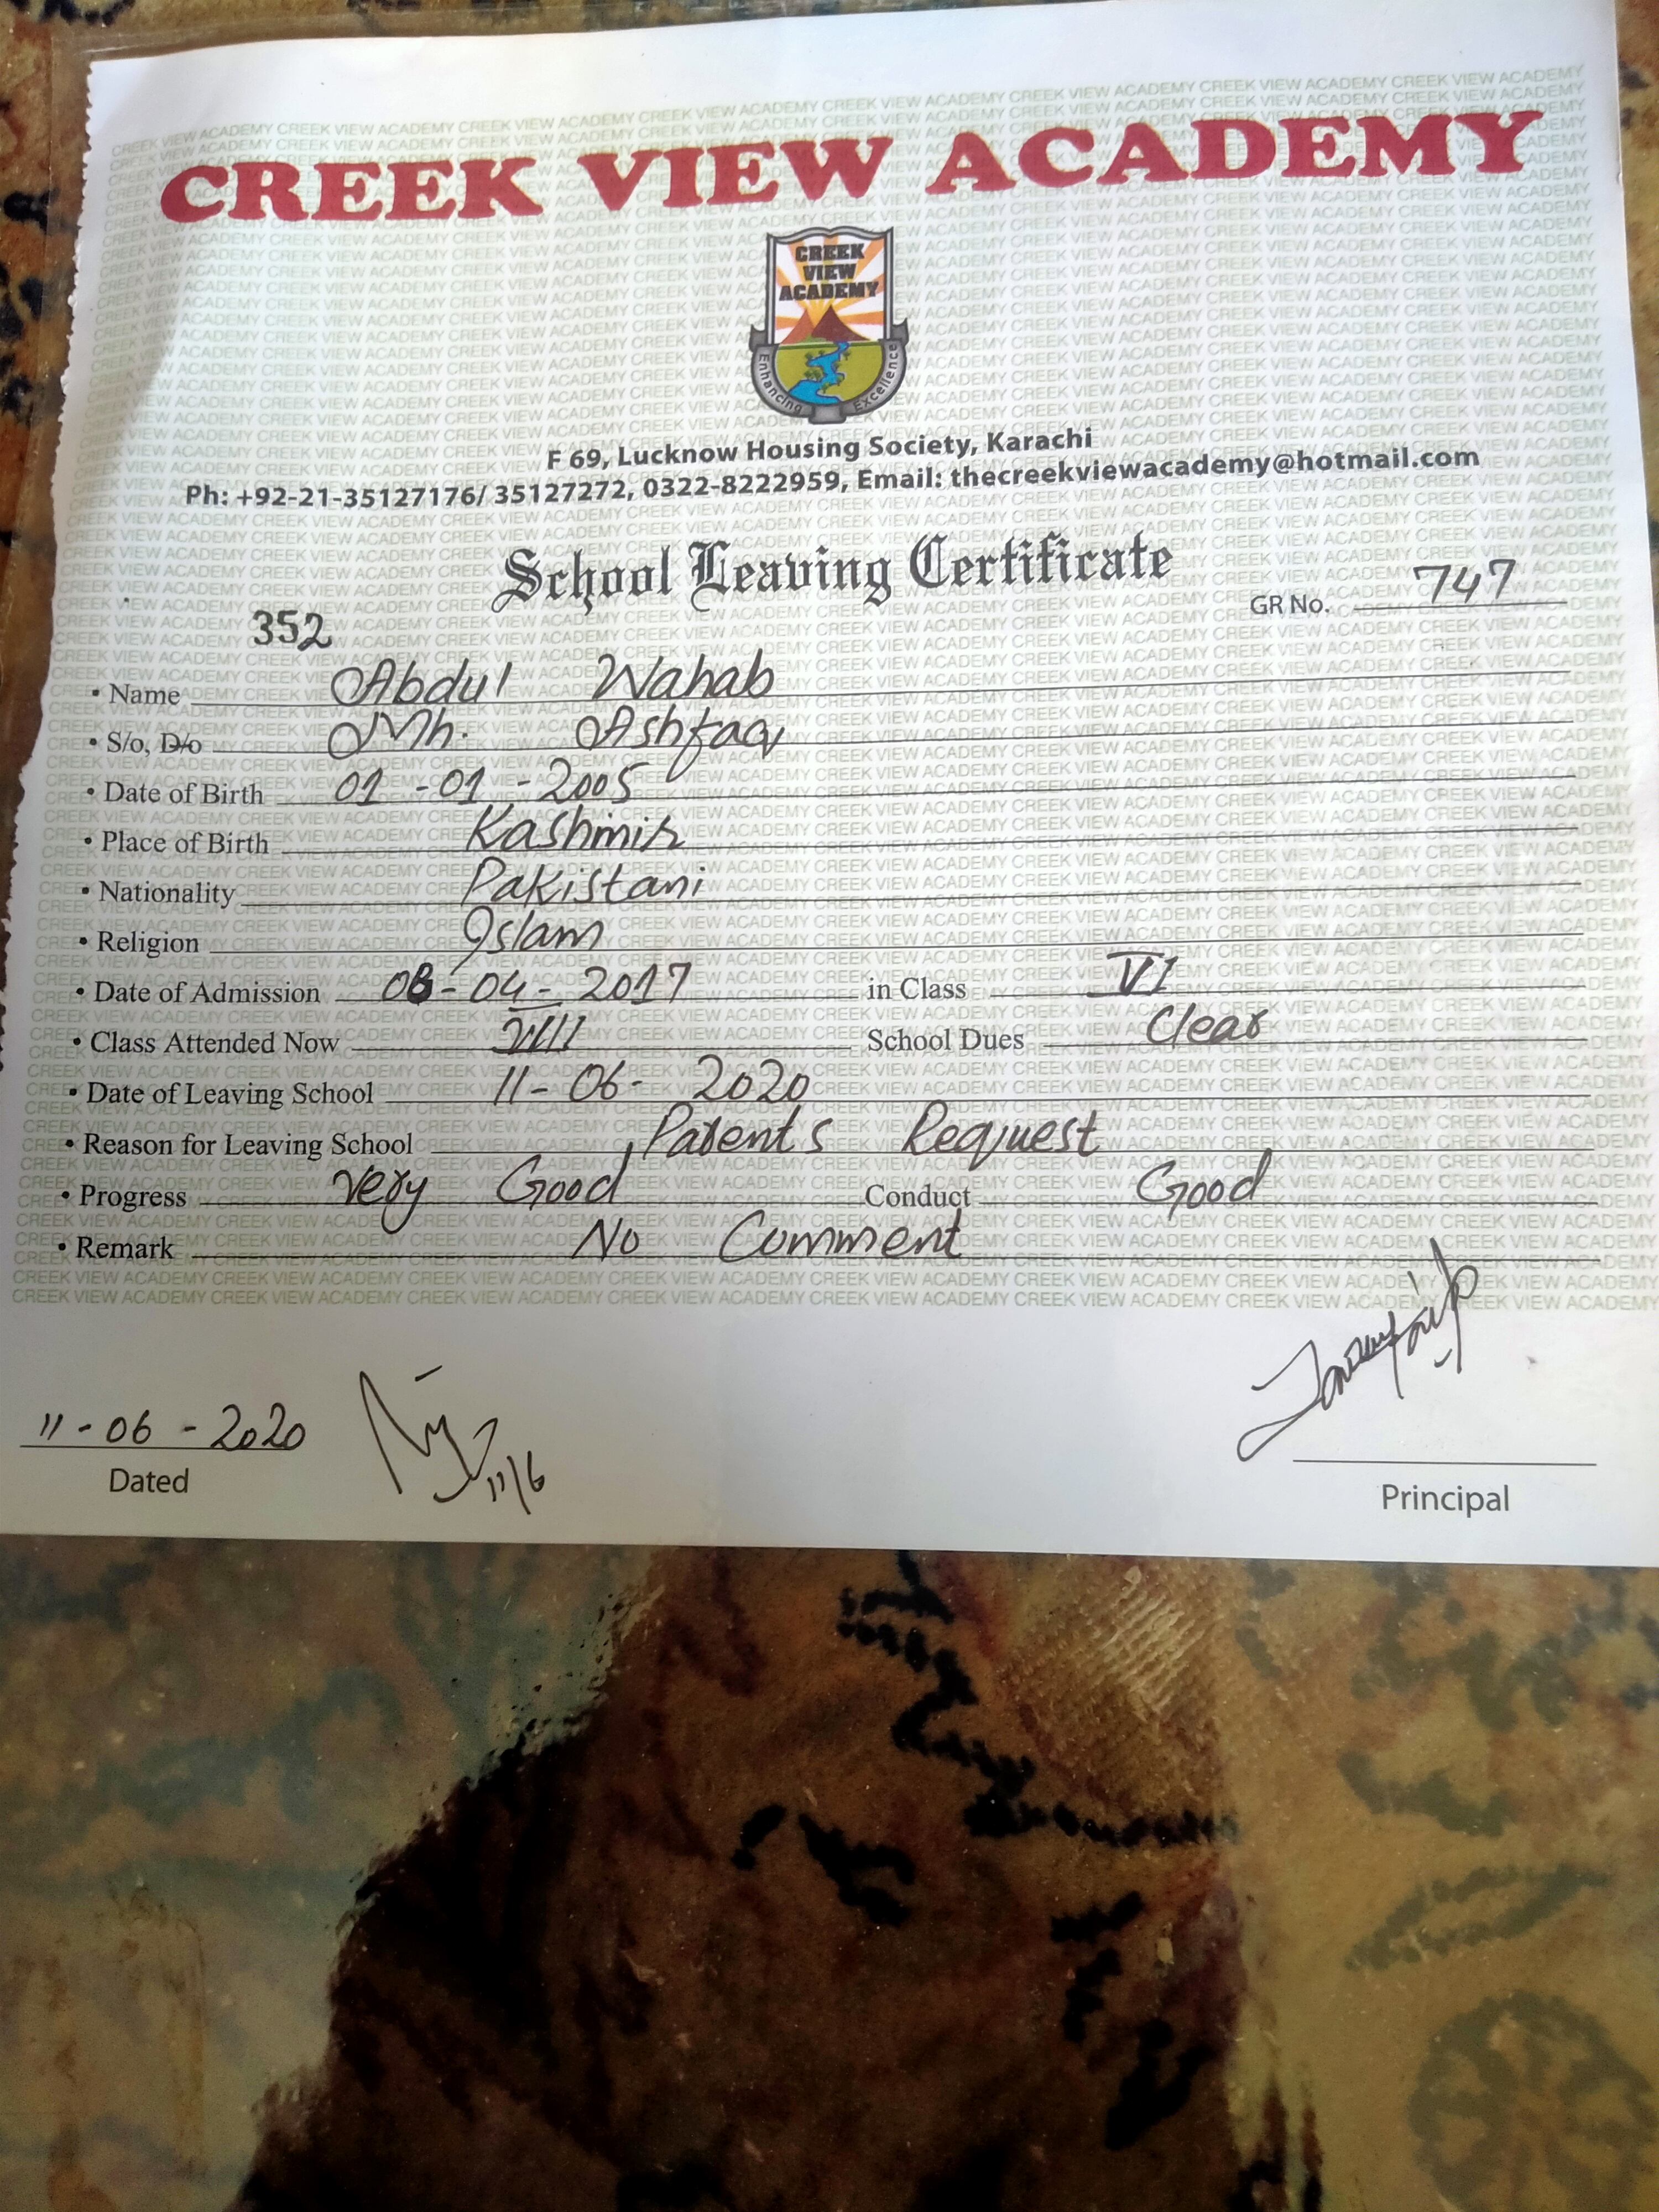 CREEK VIEW ACADEMY
CREEK
VIEW
ACADEMY
Enhancing Excellence
F 69, Lucknow Housing Society, Karachi
Ph: +92-21-35127176/ 35127272, 0322-8222959, Email: thecreekviewacademy@hotmail.com
School Leaving Certificate
GR No. 747
352
• Name Abdul Wahab
• S/o, D/o Mh. Ashfaq
• Date of Birth 01-01-2005
• Place of Birth Kashmir
• Nationality Pakistani
• Religion Islam
• Date of Admission 08-04-2017 in Class VI
• Class Attended Now VIII School Dues Clear
• Date of Leaving School 11-06-2020
• Reason for Leaving School Parents Request
• Progress Very Good Conduct Good
• Remark No Comment
11-06-2020 11/6
Dated
Principal